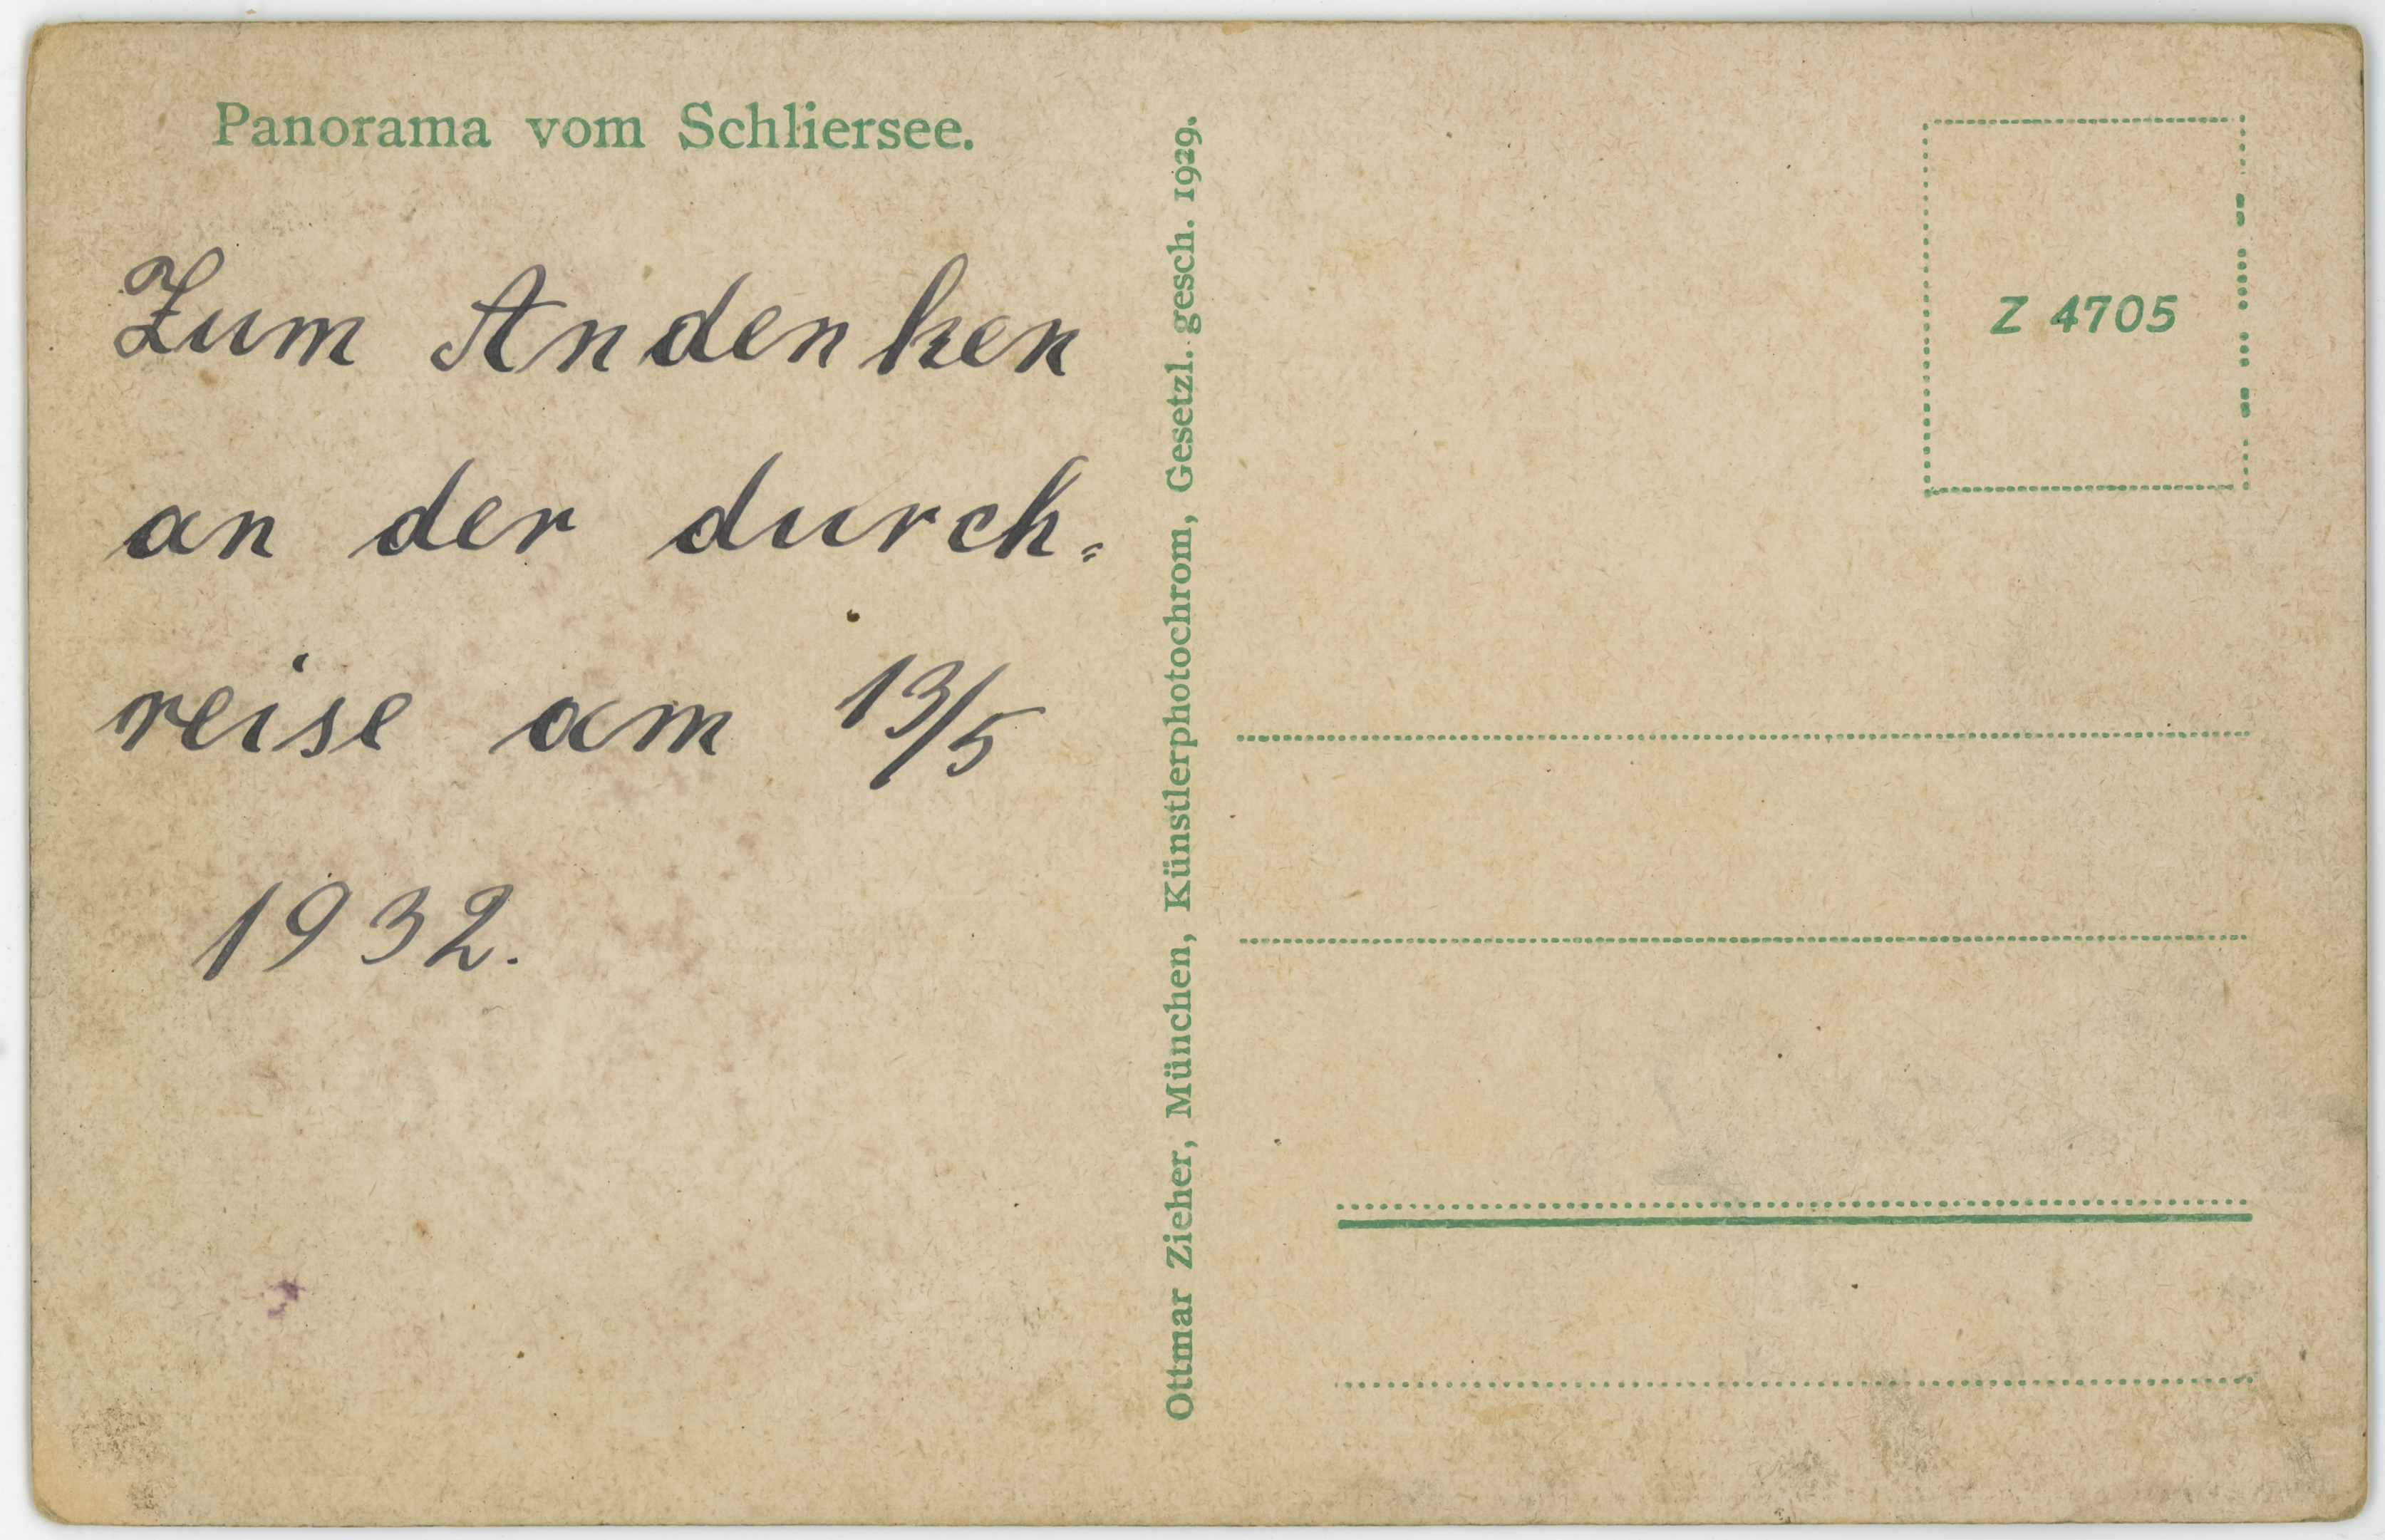 Panorama vom Schliersee.
Zum Andenken
an der durch=
reise am 13/5
1932.
Ottmar Zieher, München, Künstlerphotochrom, Gesetzl. gesch. 1929.
Z 4705